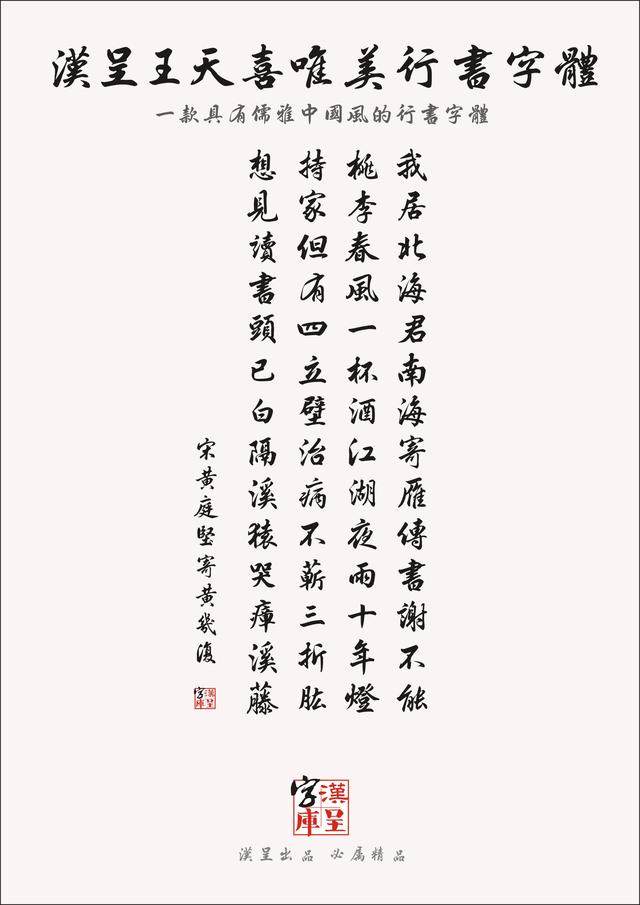 漢呈王天喜唯美行書字體
一款具有儒雅中國風的行書字體
我居北海君南海寄雁傳書謝不能
桃李春風一杯酒江湖夜雨十年燈
持家但有四立壁治病不蘄三折肱
想見讀書頭已白隔溪猿哭瘴溪藤
宋黄庭堅寄黄幾復
漢呈字庫
漢呈字庫
漢呈出品 必属精品